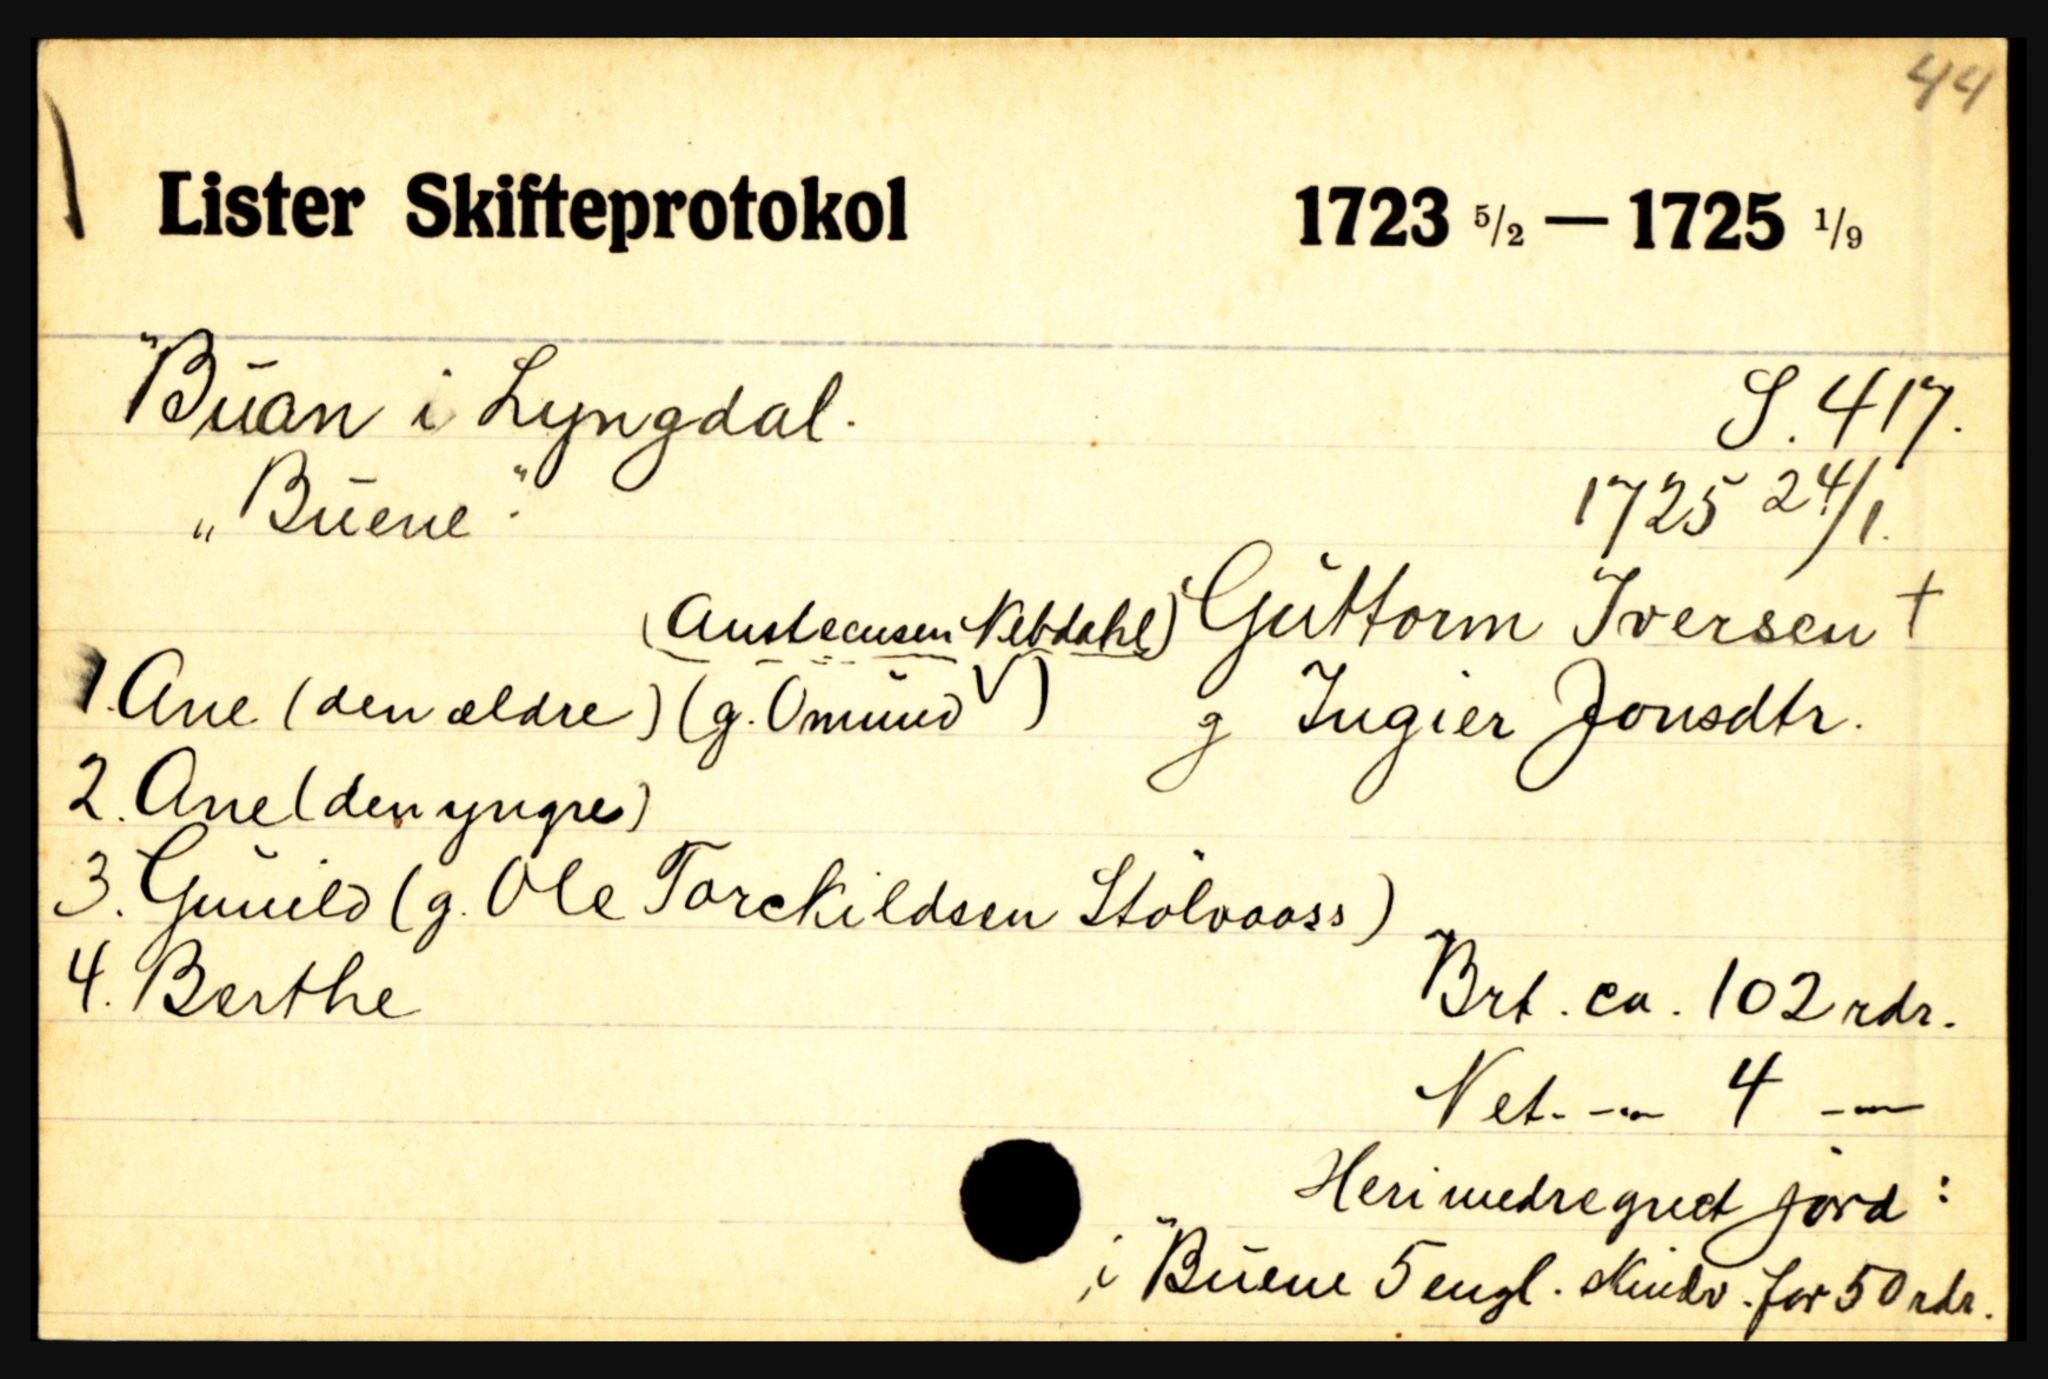 44
Lister Skifteprotokol 1723 5/2 — 1725 1/9
Buan i Lyngdal. S. 417.
„Buene". 1725 24/1.
(Austensen Nebdahl) Guttorm Iversen †
1. Ane (den ældre) (g. Omund V) g Ingier Jonsdtr.
2. Ane (den yngre)
3. Gunild (g. Ole Torckildsen Stölvaass)
4. Berthe Brt. ca. 102 rdr.
Net. -"- 4 -"-
Heri medregnet jord:
i Buene 5 engl. skindv. for 50 rdr.